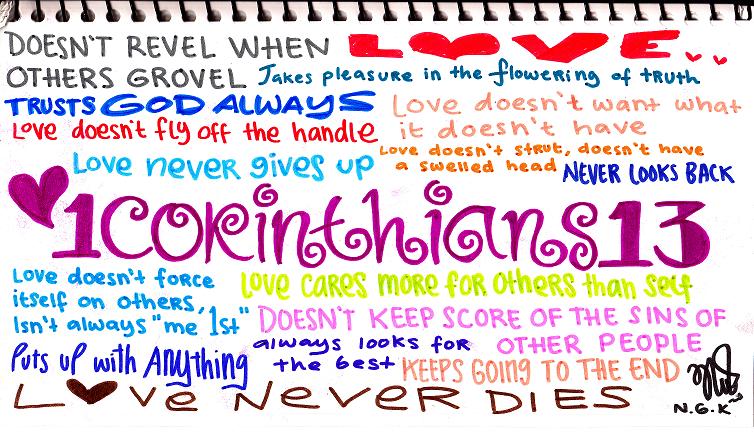 DOESN'T REVEL WHEN LOVE..
OTHERS GROVEL Takes pleasure in the flowering of truth
TRUSTS GOD ALWAYS Love doesn't want what
Love doesn't fly off the handle it doesn't have
Love never gives up Love doesn't strut, doesn't have
a swelled head NEVER LOOKS BACK
1CORinthians13
Love doesn't force Love cares more for others than self
itself on others,
Isn't always "me 1st" DOESN'T KEEP SCORE OF THE SINS OF
always looks for OTHER PEOPLE
Puts up with Anything the best KEEPS GOING TO THE END
Love Never DIES N.G.K